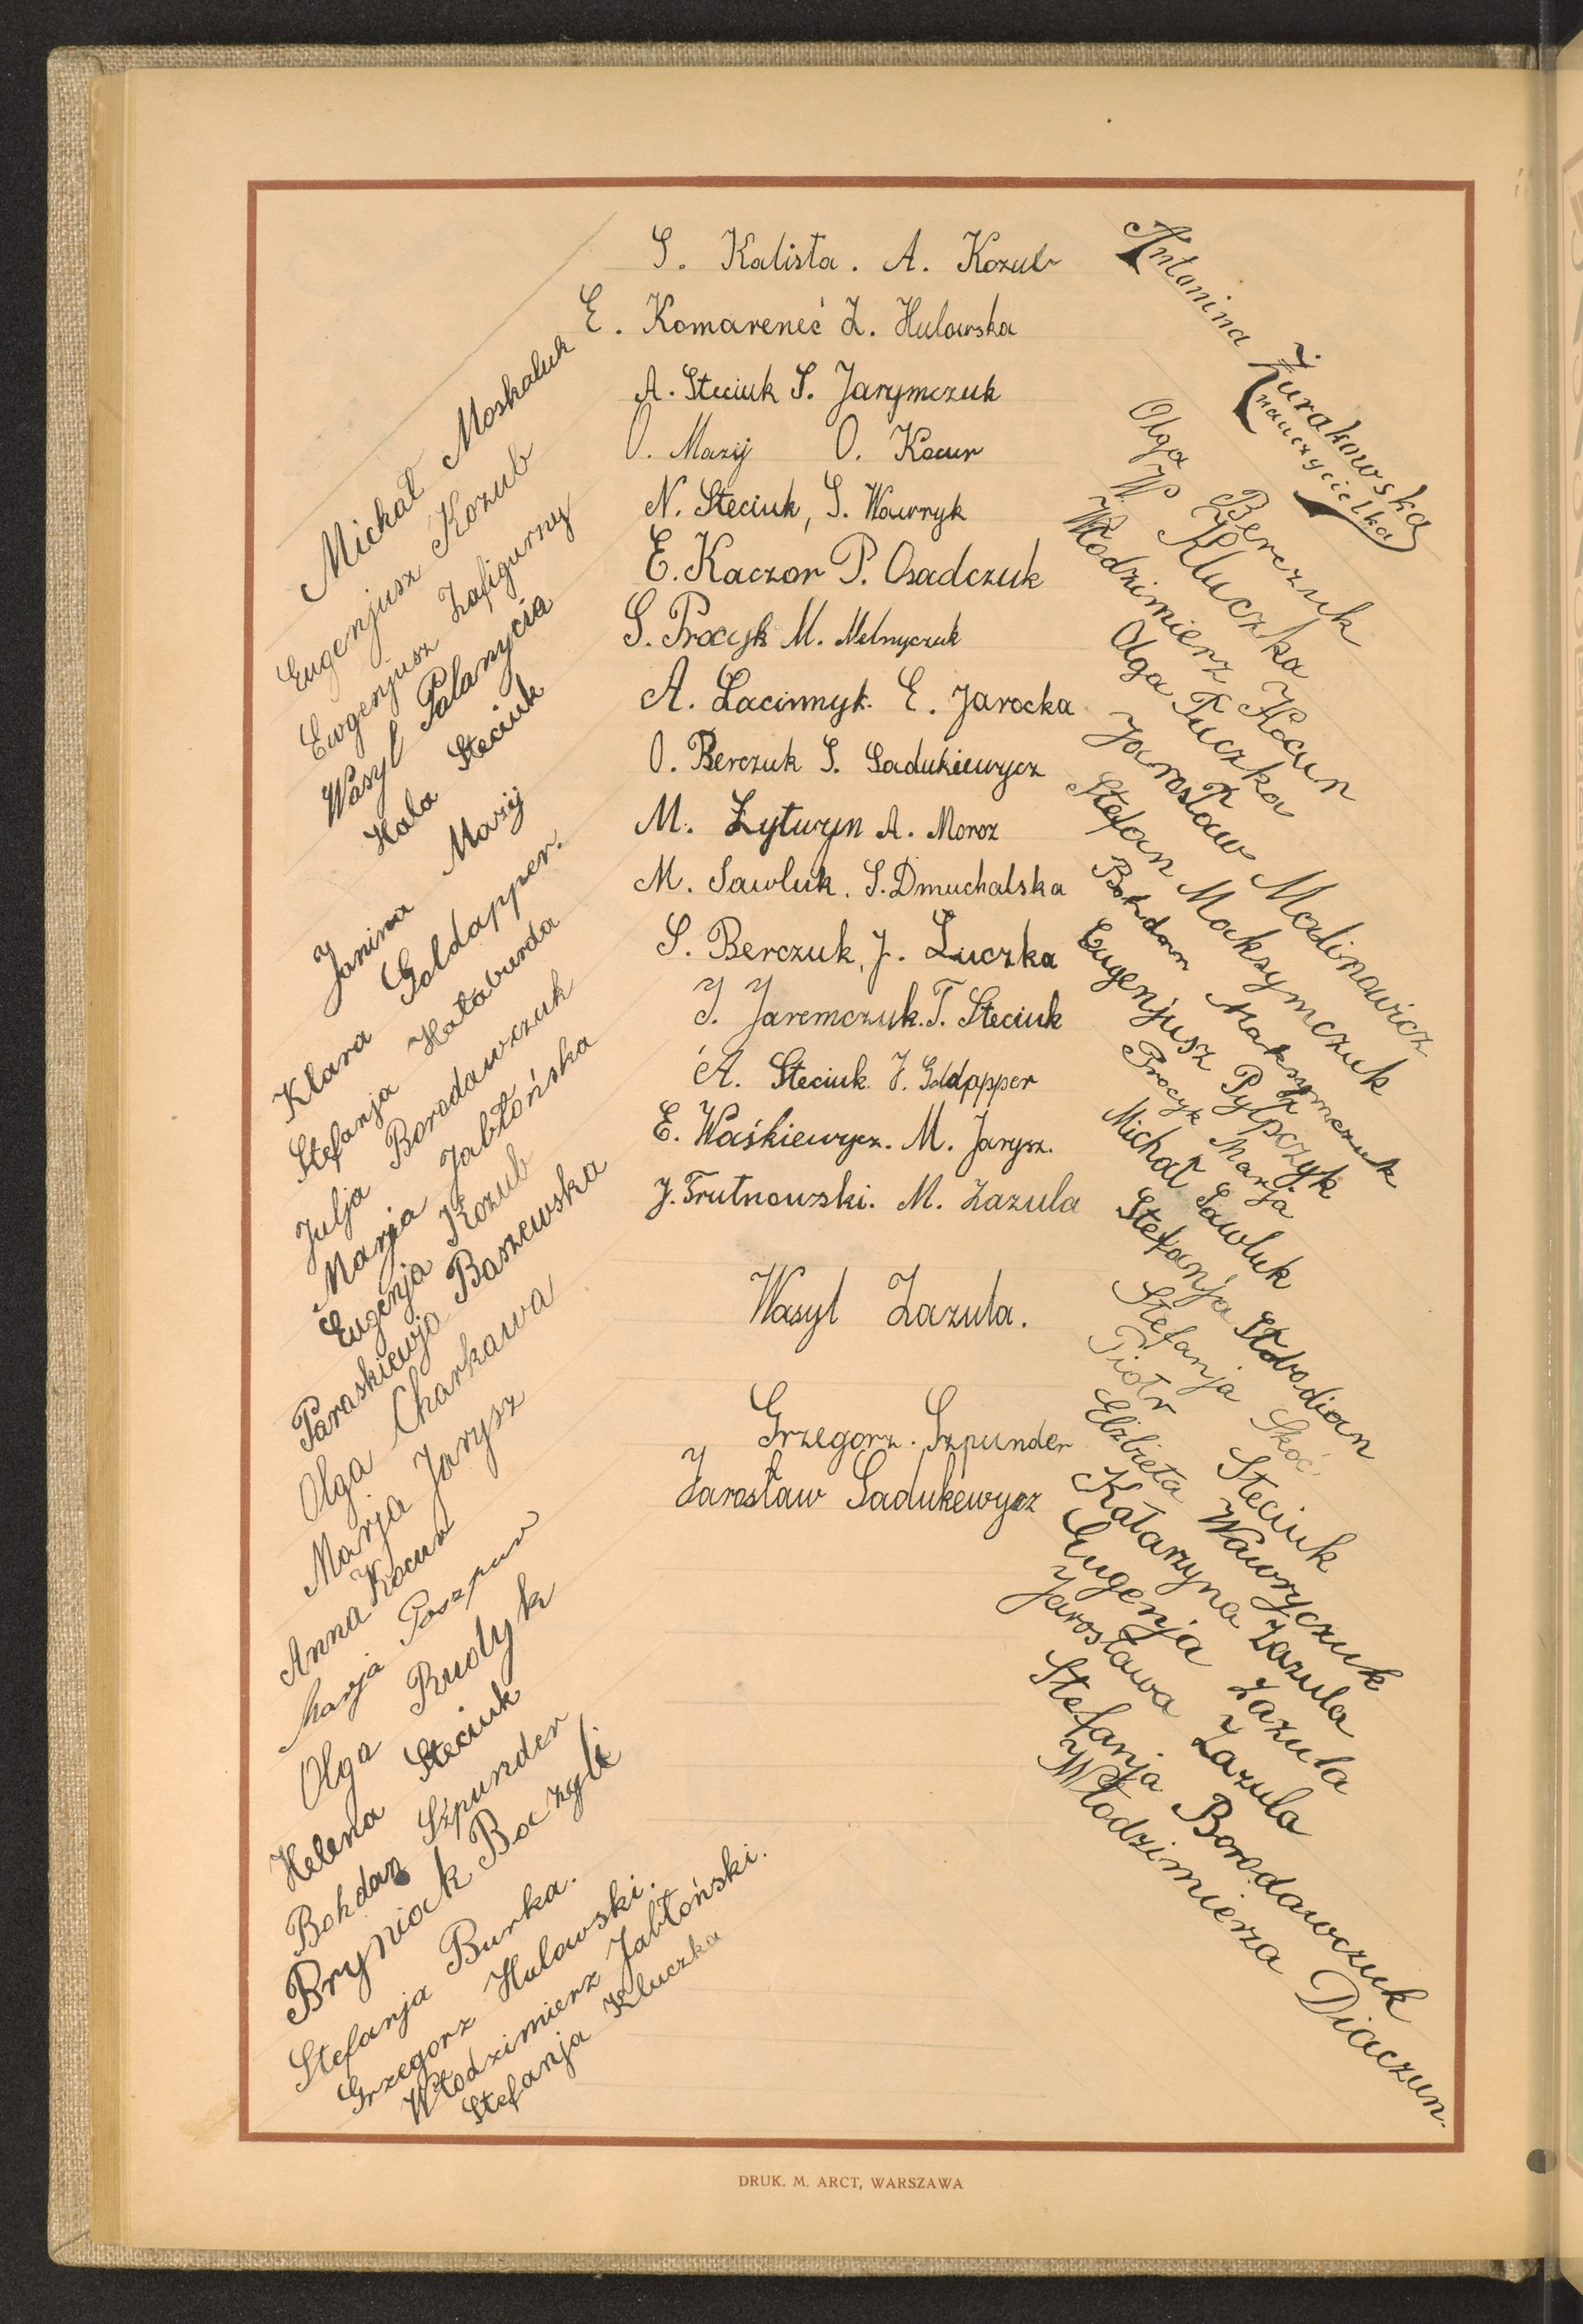 Michał Moskaluk
Eugenjusz Kozub
Ewgenjusz Zafigurny
Wasyl Palanycia
Hala Steciuk
Janina Mazij
Klara Goldapper.
Stefanja Hałaburda
Julja Borodawczuk
Marja Jabłońska
Eugenja Kozub
Paraskiewja Baszewska
Olga Charkawa
Marja Jarysz
Anna Kocur
Marja Paszpur
Olga Rudyk
Helena Steciuk
Bohdan Szpunder
Bryniock Boczyli
Stefanja Burka.
Grzegorz Hulawski.
Włodzimierz Jabłoński.
Stefanja Kluczka
S. Kalista. A. Kozub
E. Komareneć Z. Hulowska
A. Steciuk S. Jarymczuk
O. Mazij O. Kocur
N. Steciuk, S. Wawryk
E. Kaczor P. Osadczuk
S. Procyk M. Melnyczuk
A. E. Jarocka
O. Berczuk S. Sadukiewycz
M. Łytwyn A. Moroz
M. Sawluk. S. Dmuchalska
S. Berczuk, J. Luczka
J. Jaremczuk. T. Steciuk
A. Steciuk. J. Goldapper
E. Waśkiewycz. M. Jarysz.
J. Trutnowski. M. Zazula
Wasyl Zazula.
Grzegorz. Szpunder
Jarosław Sadukewycz
Antonina Żurakowska
(nauczycielka)
Olga Berczuk
W. Kluczka
Włodzimierz Kocur
Olga Łuczka
Jarosław Malinowicz
Stefan Maksymczuk
Bohdan Maksymczuk
Eugenjusz Pylpczyk
Procyk Marja
Michał Sawluk
Stefanja Słobodian
Stefanja Skoć
Piotr Steciuk
Elżbieta Wawryczuk
Katarzyna Zazula
Eugenja Zazula
Jarosława Zazula
Stefanja Borodawczuk
Włodzimierza Diaczun.
DRUK. M. ARCT, WARSZAWA